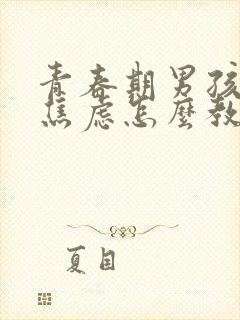 青春期男孩
焦虑怎麼教
夏目